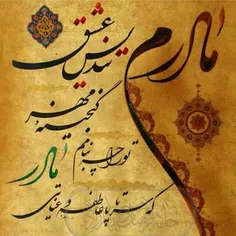 مادرم
تندیس عشق
گنجینهٔ مهر
تو را چه بنامم مادر
که سر تا پا عاطفه و عنایتی